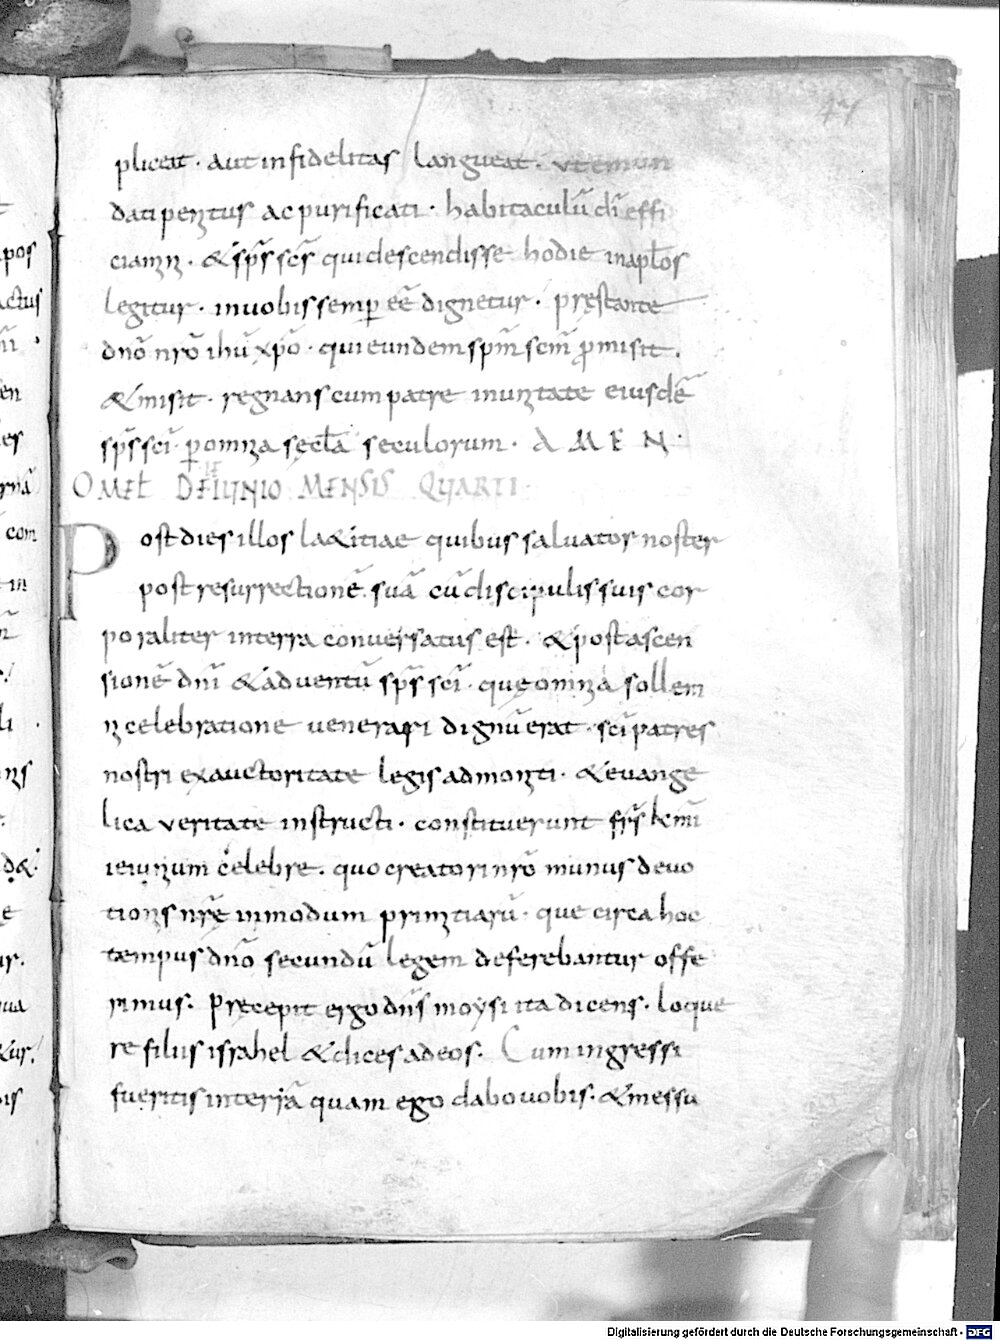 47
pliceat · aut infidelitas langueat · ut emun
dati penitus ac purificati · habitaculū dī effi
ciamini · & sp̄s sc̄s qui descendisse hodie in apłos
legitur · in uobis semper eē dignetur · pręstante
dn̄o nr̄o ihū xp̄o · qui eundem sp̄m sc̄m promisit ·
& misit · regnans cum patre in unitate eiusdē
sp̄s sc̄i · per omnia secła seculorum · A M E N ·
OMEƚ DE IEIUNIO MENSIS QUARTI
Post dies illos laetitiae quibus saluator noster
post resurrectionē suā cū discipulis suis cor
poraliter in terra conuersatus est · & post ascen
sionē dn̄i & aduentū sp̄s sc̄i · quę omnia sollem
ni celebratione uenerari dignū erat · sc̄i patres
nostri ex auctoritate legis admoniti · & euange
lica ueritate instructi · constituerunt fr̄s k̄mi
ieiunium celebre · quo creatori nr̄o munus deuo
tionis nr̄ę in modum primitiarū · que circa hoc
tempus dn̄o secundū legem deferebantur offe
rimus · Pręcepit ergo dn̄s moysi ita dicens · loque
re filiis israhel & dices ad eos · Cum ingressi
fueritis in terrā quam ego dabo uobis · & messu
pos
actus
com
in
Digitalisierung gefördert durch die Deutsche Forschungsgemeinschaft - DFG